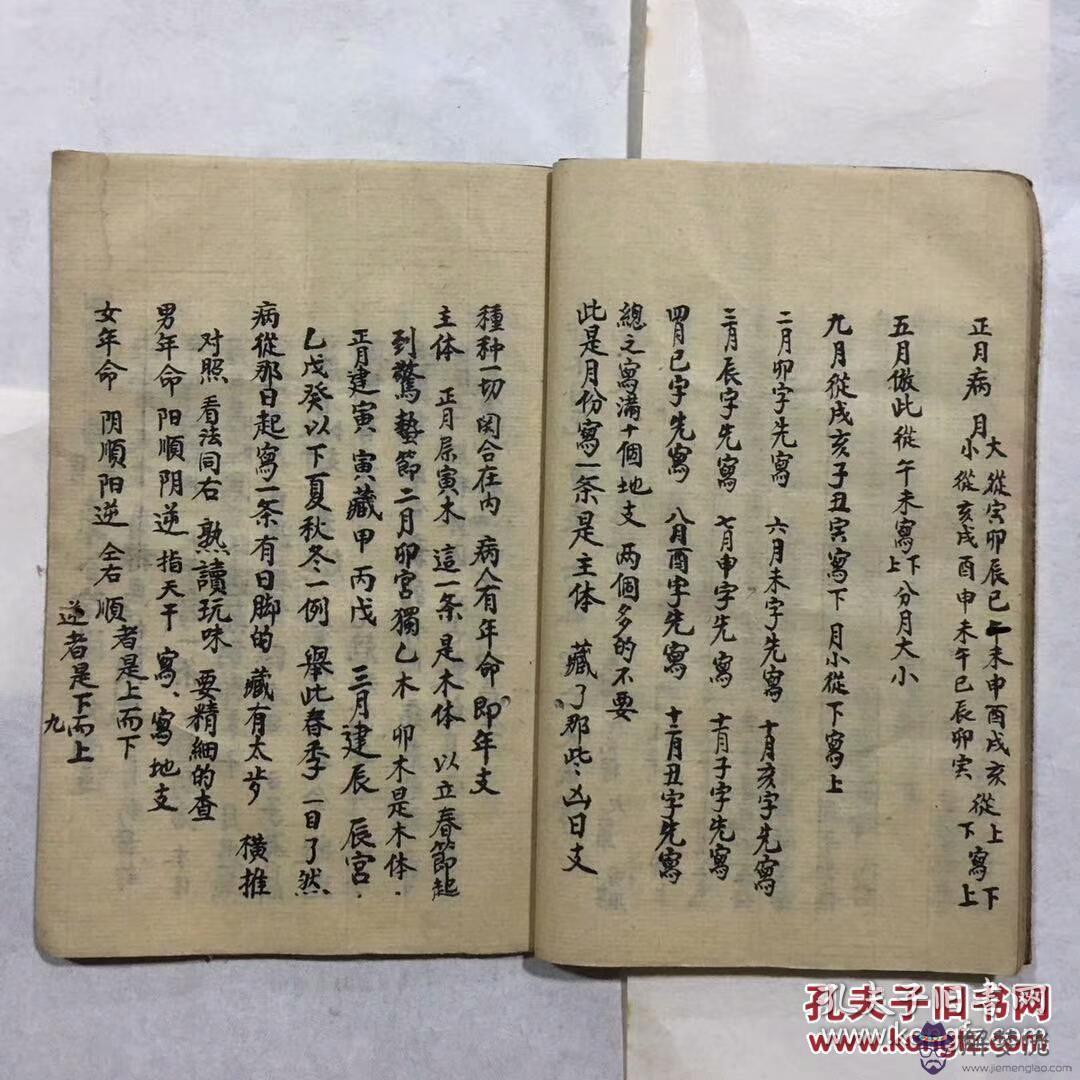 正月病月大從寅卯辰巳午未申酉戌亥從上寫下
小從亥戌酉申未午巳辰卯寅下寫上
五月倣此從午未寫上下分月大小
九月從戌亥子丑寅寫下月小從下寫上
二月卯字先寫 六月未字先寫 十月亥字先寫
三月辰字先寫 七月申字先寫 十一月子字先寫
四月巳字先寫 八月酉字先寫 十二月丑字先寫
總之寫满十個地支 两個多的不要
此是月份寫一条是主体 藏了那些凶日支
種种一切関合在内 病人有年命即年支
主体 正月屛寅木 這一条是木体 以立春節起
到驚蟄節二月卯宮獨乙木 卯木是木体
正月建寅 寅藏甲丙戊 三月建辰 辰宮
乙戊癸以下夏秋冬一例 舉此春季一目了然
病從那日起寫一条有日脚的 藏有太岁 橫推
对照 看法同右 熟讀玩味 要精細的查
男年命阳順阴逆 指天干 寫、寫地支
女年命 阴順阳逆 仝右 順者是上而下
逆者是下而上
九
孔夫子旧书网
www.kongfz.com
解梦佬
www.jiemenglao.com